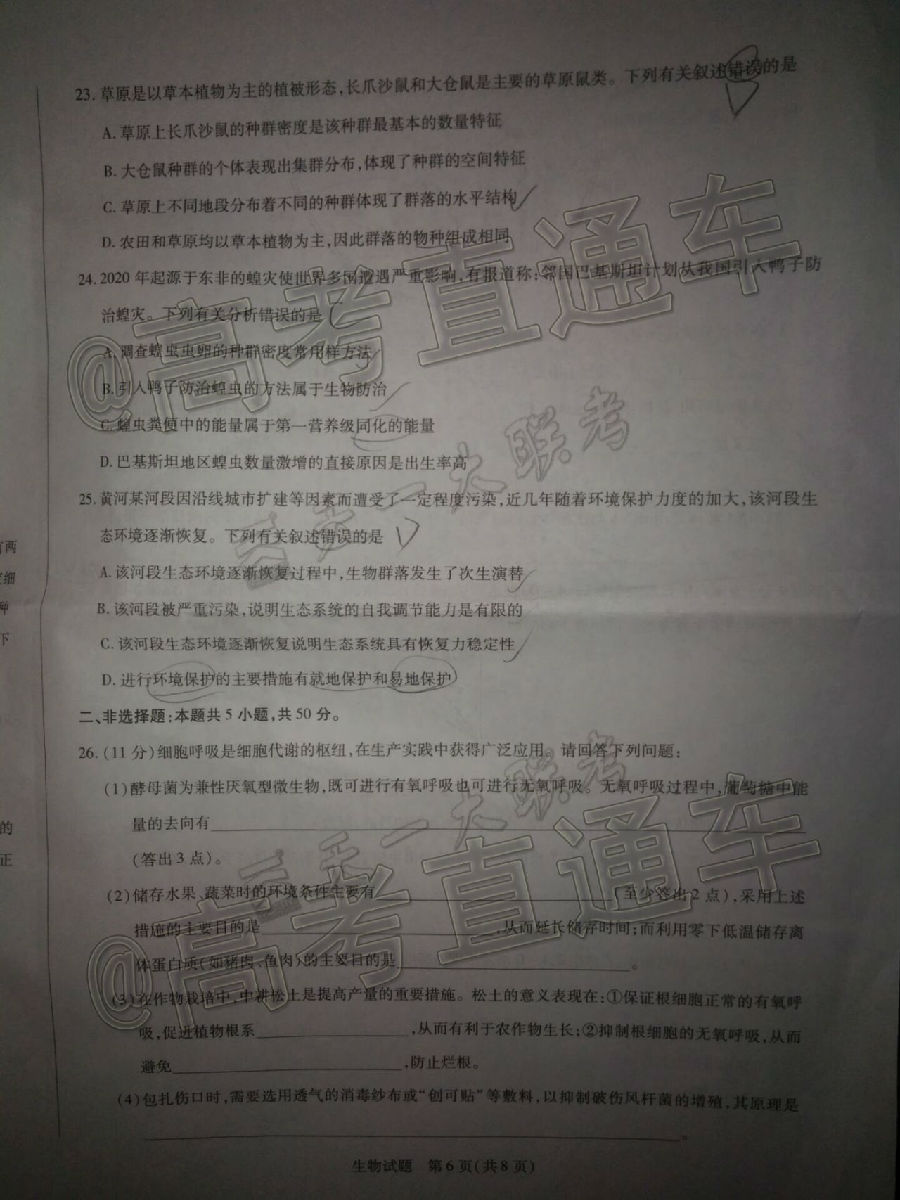 23.草原是以草本植物为主的植被形态,长爪沙鼠和大仓鼠是主要的草原鼠类。下列有关叙述错误的是
A.草原上长爪沙鼠的种群密度是该种群最基本的数量特征
B.大仓鼠种群的个体表现出集群分布,体现了种群的空间特征
C.草原上不同地段分布着不同的种群体现了群落的水平结构
D.农田和草原均以草本植物为主,因此群落的物种组成相同
24.2020年起源于东非的蝗灾使世界多国遭遇严重影响,有报道称:邻国巴基斯坦计划从我国引入鸭子防
治蝗灾。下列有关分析错误的是
A.调查蝗虫虫卵的种群密度常用样方法
B.引入鸭子防治蝗虫的方法属于生物防治
C.蝗虫粪便中的能量属于第一营养级同化的能量
D.巴基斯坦地区蝗虫数量激增的直接原因是出生率高
25.黄河某河段因沿线城市扩建等因素而遭受了一定程度污染,近几年随着环境保护力度的加大,该河段生
态环境逐渐恢复。下列有关叙述错误的是
A.该河段生态环境逐渐恢复过程中,生物群落发生了次生演替
B.该河段被严重污染,说明生态系统的自我调节能力是有限的
C.该河段生态环境逐渐恢复说明生态系统具有恢复力稳定性
D.进行环境保护的主要措施有就地保护和易地保护
二、非选择题:本题共5小题,共50分。
26.(11分)细胞呼吸是细胞代谢的枢纽,在生产实践中获得广泛应用。请回答下列问题:
(1)酵母菌为兼性厌氧型微生物,既可进行有氧呼吸也可进行无氧呼吸。无氧呼吸过程中,葡萄糖中能
量的去向有
(答出3点)。
(2)储存水果、蔬菜时的环境条件主要有 (至少答出2点),采用上述
措施的主要目的是 ,从而延长储存时间;而利用零下低温储存离
体蛋白质(如猪肉、鱼肉)的主要目的是 。
(3)在作物栽培中,中耕松土是提高产量的重要措施。松土的意义表现在:①保证根细胞正常的有氧呼
吸,促进植物根系 ,从而有利于农作物生长;②抑制根细胞的无氧呼吸,从而
避免 ,防止烂根。
(4)包扎伤口时,需要选用透气的消毒纱布或“创可贴”等敷料,以抑制破伤风杆菌的增殖,其原理是
。
生物试题 第6页(共8页)
两
细
种
下
的
正
@高考直通车
天一大联考
天一大联考
@高考直通车